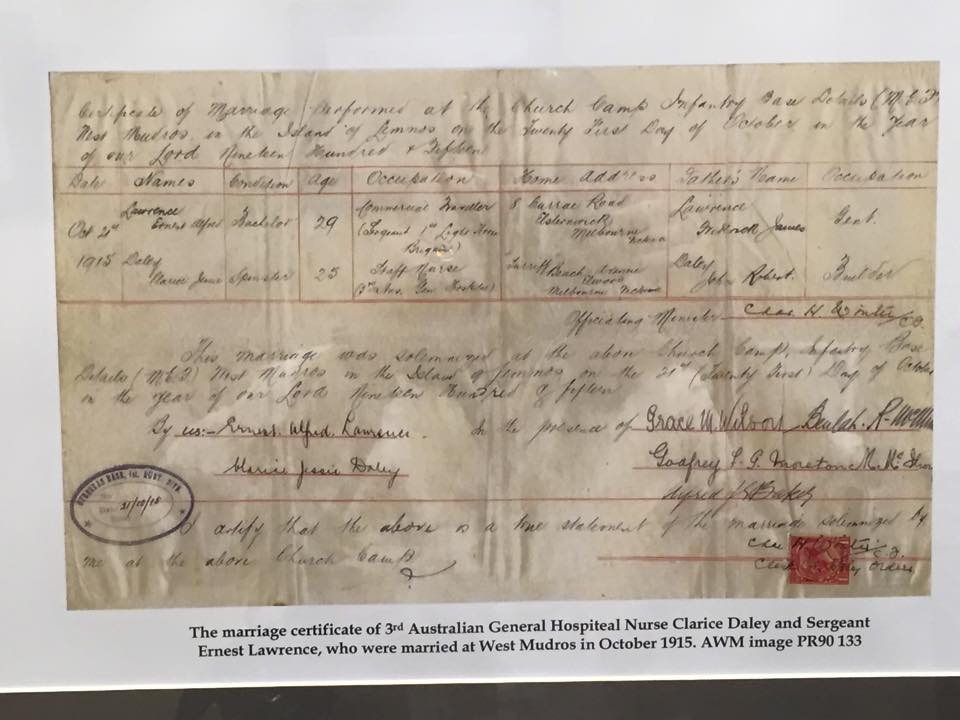 Certificate of Marriage Performed at the Church Camp Infantry Base Details (M.E.F)
West Mudros in the Island of Lemnos on the Twenty First Day of October in the Year
of our Lord Nineteen Hundred & Fifteen
Date Names Condition Age Occupation Home Address Father's Name Occupation
Oct 21st Lawrence Ernest Alfred Bachelor 29 Commercial Traveller (Sergeant 1st Light Horse Brigade) 8 Road Elsternwick Melbourne Lawrence Frederick James Gent.
1915 Daley Clarice Jessie Spinster 25 Staff Nurse (3rd Aus. Gen. Hospital) Beach Avenue Elwood Melbourne Daley John Robert. Builder
Officiating Minister Chas H
This marriage was solemnized at the above Church Camp, Infantry Base
Details (M.E.F) West Mudros in the Island of Lemnos, on the 21st (Twenty First) Day of October
in the year of our Lord Nineteen Hundred & fifteen
By us:- Ernest Alfred Lawrence. In the presence of Grace M. Wilson Beulah
Clarice Jessie Daley Godfrey
Alfred
21/10/15
I certify that the above is a true statement of the marriage solemnized by
me at the above Church Camp
The marriage certificate of 3rd Australian General Hospiteal Nurse Clarice Daley and Sergeant
Ernest Lawrence, who were married at West Mudros in October 1915. AWM image PR90 133